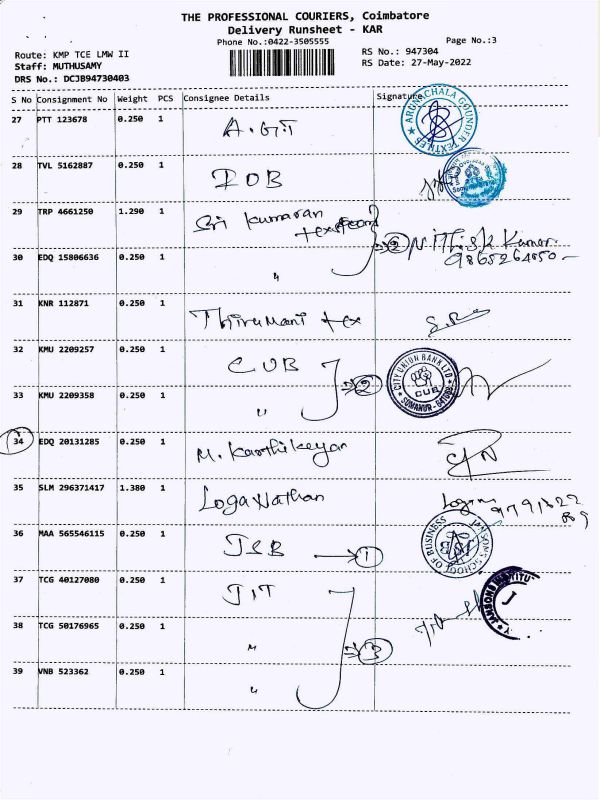 THE PROFESSIONAL COURIERS, Coimbatore
Delivery Runsheet - KAR
Phone No.:0422-3505555
Page No.:3
Route: KMP TCE LMW II
RS No.: 947304
Staff: MUTHUSAMY
RS Date: 27-May-2022
DRS No.: DCJB94730403
S No Consignment No Weight PCS Consignee Details Signature
27 PTT 123678 0.250 1 A.G.T
ARUNACHALA GOUNDER TEXTILES
28 TVL 5162887 0.250 1 IOB
29 TRP 4661250 1.290 1 Sri Kumaran
② Nithish Kumar
30 EDQ 15806636 0.250 1 "
31 KNR 112871 0.250 1 Thirumani tex
32 KMU 2209257 0.250 1 CUB
② CITY UNION BANK LTD CUB
33 KMU 2209358 0.250 1 "
34 EDQ 20131285 0.250 1 M. Karthikeyan
35 SLM 296371417 1.380 1 Loganathan
36 MAA 565546115 0.250 1 JSB → ①
JANSONS SCHOOL OF BUSINESS
37 TCG 40127080 0.250 1 JIT
38 TCG 50176965 0.250 1 " ③
39 VNB 523362 0.250 1 "